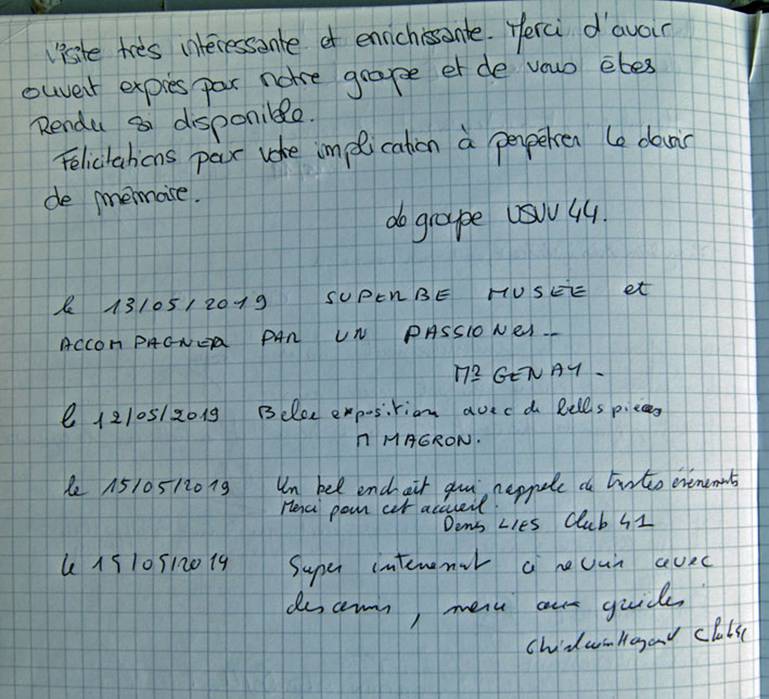 Visite très intéressante et enrichissante. Merci d'avoir
ouvert exprès par notre groupe et de vous êtes
Rendu si disponible.
Félicitations pour votre implication à perpétrer le devoir
de mémoire.
groupe USVV 44.
le 13/05/2019 SUPERBE MUSEE et
ACCOMPAGNER PAR UN PASSIONES..
Mr GENAY.
le 12/05/2019 Belle exposition avec de belles pieces
M MAGRON.
le 15/05/2019 Un bel endroit qui rappele de tristes évènements
Merci pour cet accueil.
Denis LIES Club 41
le 15/05/2019 Super interessant a revoir avec
des amis, merci aux guides
Club 41